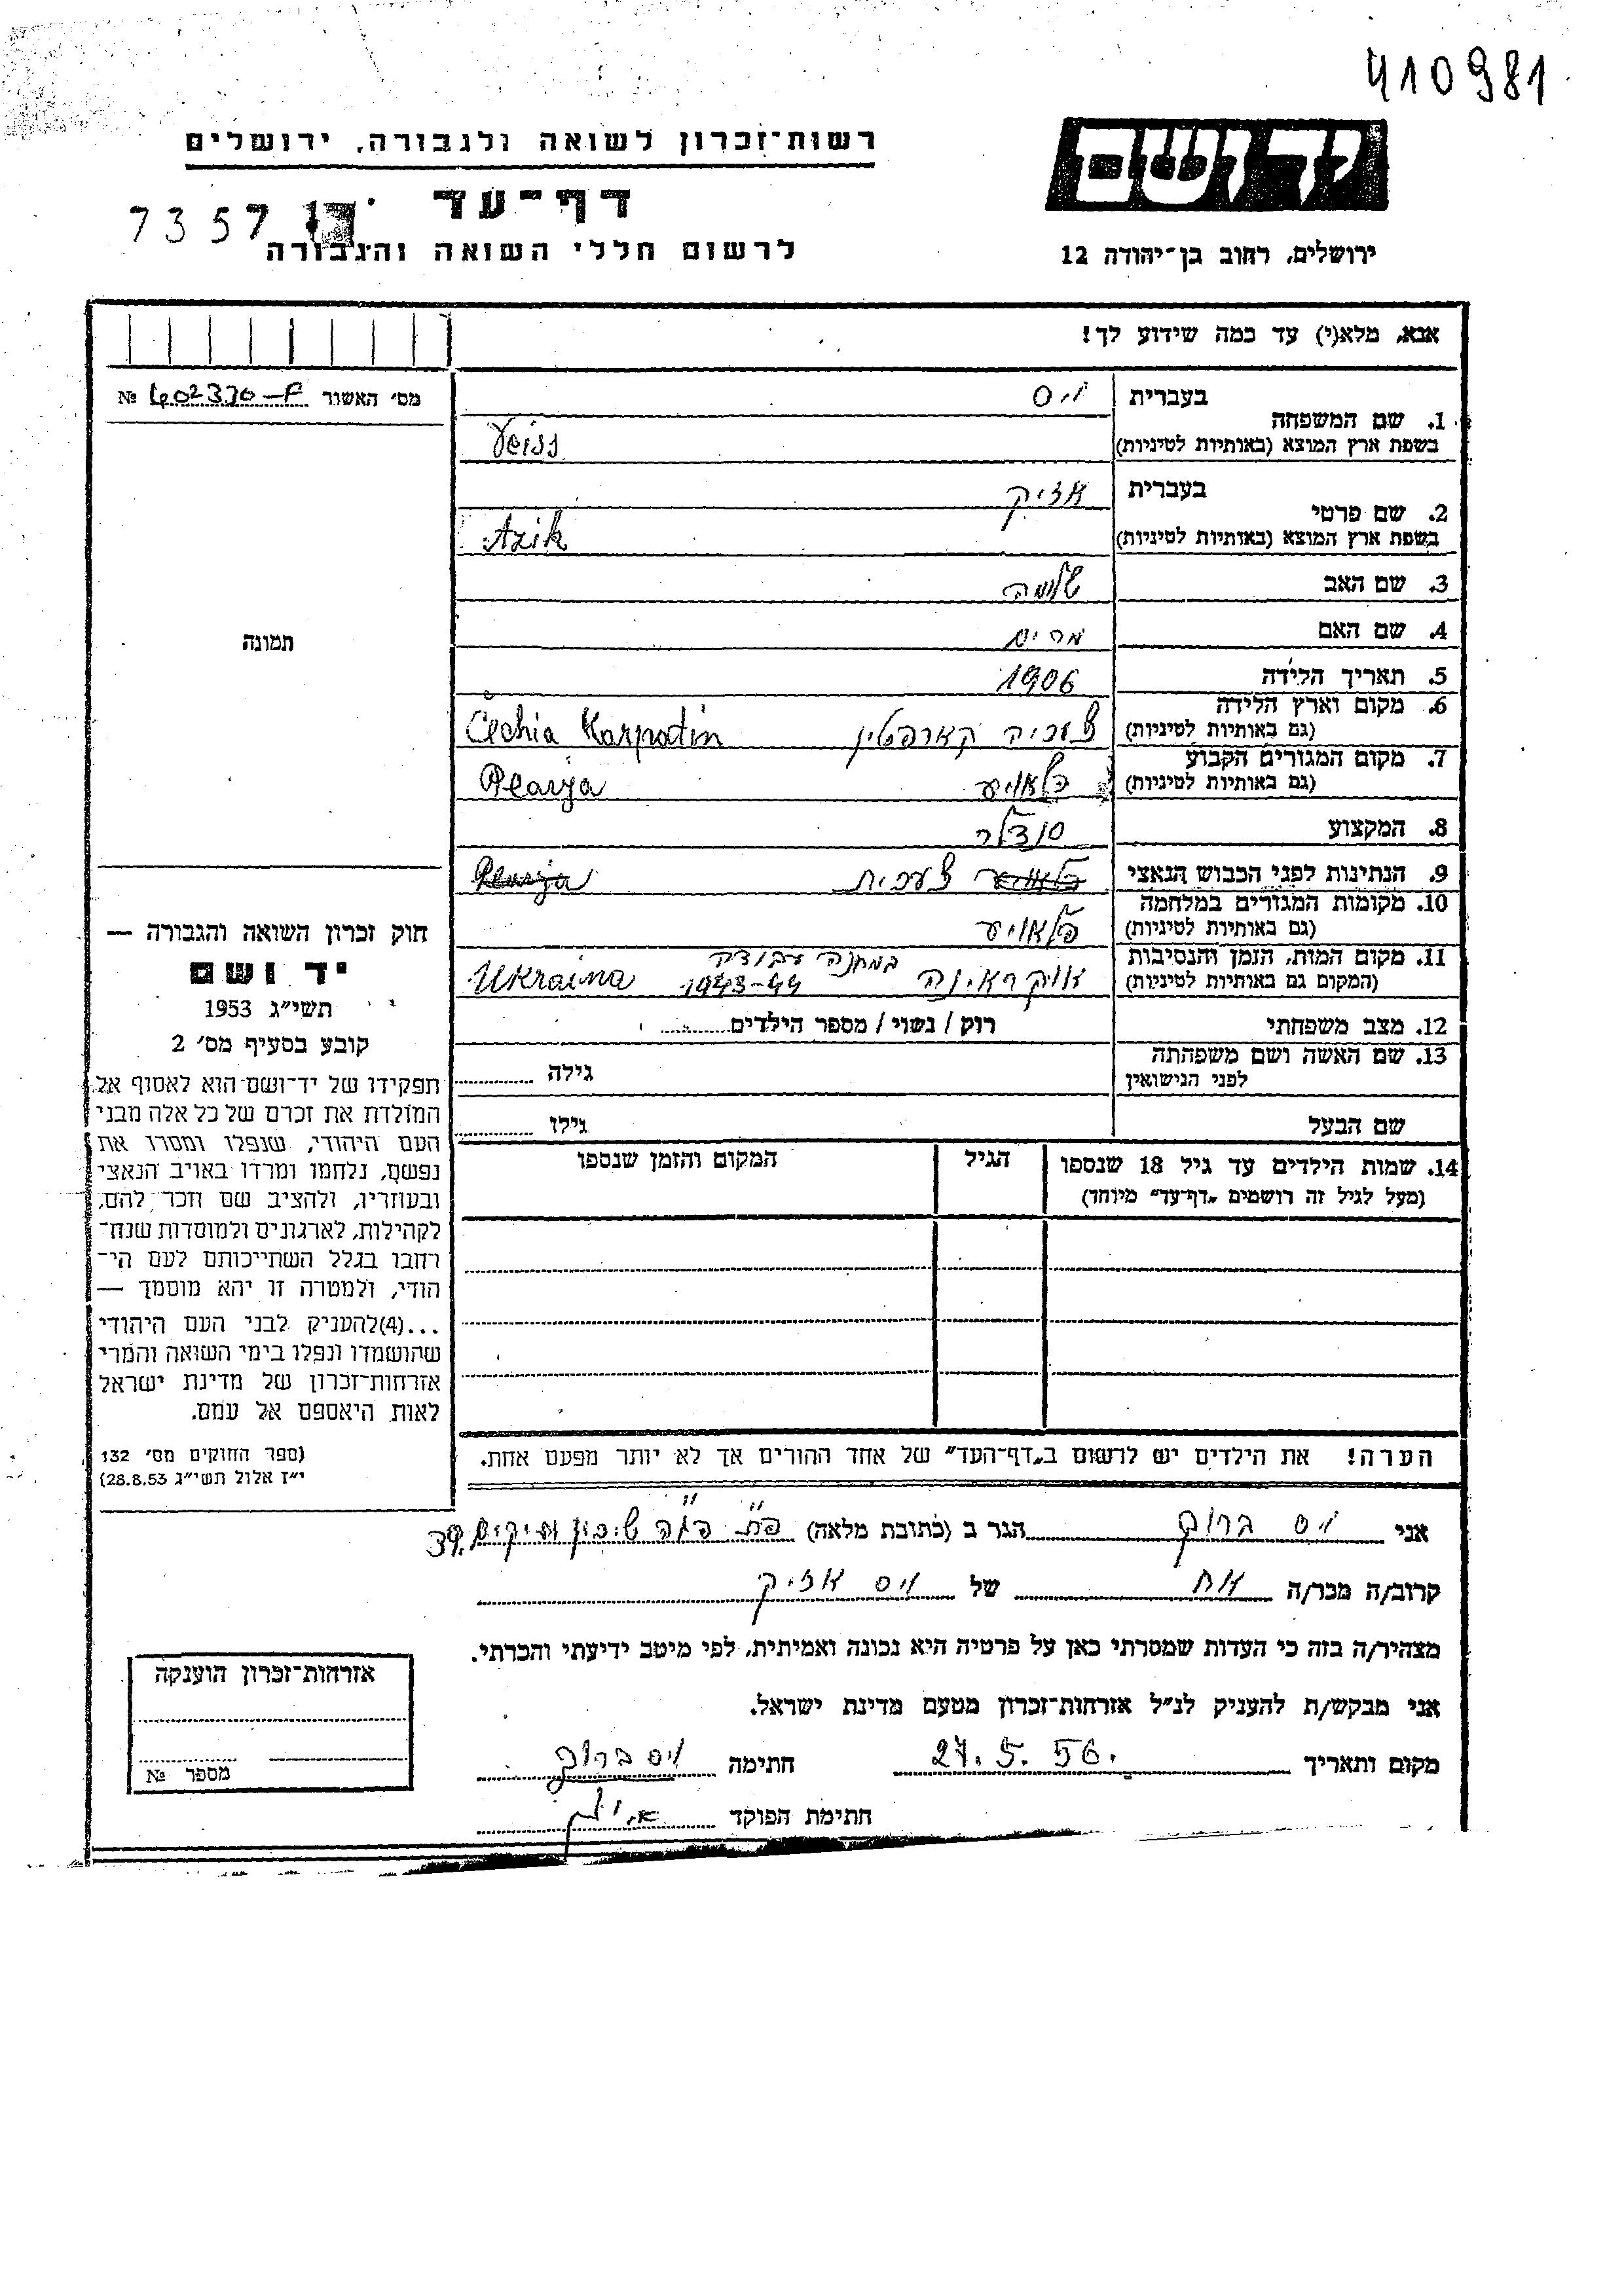 410981
יד ושם
רשות־זכרון לשואה ולגבורה, ירושלים
דף־עד
7357
ירושלים, רחוב בן־יהודה 12
לרשום חללי השואה והגבורה
אנא, מלא(י) עד כמה שידוע לך!
מס׳ האשור № 402330-F
1. שם המשפחה
בעברית ויס
בשפת ארץ המוצא (באותיות לטיניות) Veiss
2. שם פרטי
בעברית אזיק
בשפת ארץ המוצא (באותיות לטיניות) Azik
3. שם האב שלמה
4. שם האם מרים
5. תאריך הלידה 1906
6. מקום וארץ הלידה
(גם באותיות לטיניות) צ׳כיה קארפטין Čechia Karpatin
7. מקום המגורים הקבוע
(גם באותיות לטיניות) פלאויע Plavja
8. המקצוע סנדלר
9. הנתינות לפני הכבוש הנאצי צ׳כית
10. מקומות המגורים במלחמה
(גם באותיות לטיניות) פלאויע
11. מקום המות, הזמן והנסיבות במחנה עבודה
(המקום גם באותיות לטיניות) אוקראינה 1943-44 Ukraina
12. מצב משפחתי רוק / נשוי / מספר הילדים
13. שם האשה ושם משפחתה
לפני הנישואין גילה
שם הבעל גילו
14. שמות הילדים עד גיל 18 שנספו
(מעל לגיל זה רושמים „דף־עד״ מיוחד)
הגיל
המקום והזמן שנספו
הערה! את הילדים יש לרשום ב„דף־העד״ של אחד ההורים אך לא יותר מפעם אחת.
תמונה
חוק זכרון השואה והגבורה —
יד ושם
תשי״ג 1953
קובע בסעיף מס׳ 2
תפקידו של יד־ושם הוא לאסוף אל
המולדת את זכרם של כל אלה מבני
העם היהודי, שנפלו ומסרו את
נפשם, נלחמו ומרדו באויב הנאצי
ובעוזריו, ולהציב שם וזכר להם,
לקהילות, לארגונים ולמוסדות שנח־
רחבו בגלל השתייכותם לעם הי־
הודי, ולמטרה זו יהא מוסמך —
...(4)להעניק לבני העם היהודי
שהושמדו ונפלו בימי השואה והמרי
אזרחות־זכרון של מדינת ישראל
לאות היאספם אל עמם.
(ספר החוקים מס׳ 132
י״ז אלול תשי״ג 28.8.53)
אני ויס ברוך הגר ב (כתובת מלאה) שיכון ותיקים 39
קרוב/ה מכר/ה אח של ויס אזיק
מצהיר/ה בזה כי העדות שמסרתי כאן על פרטיה היא נכונה ואמיתית, לפי מיטב ידיעתי והכרתי.
אני מבקש/ת להעניק לנ״ל אזרחות־זכרון מטעם מדינת ישראל.
מקום ותאריך 27.5.56. חתימה ויס ברוך
חתימת הפוקד
אזרחות־זכרון הוענקה
מספר №